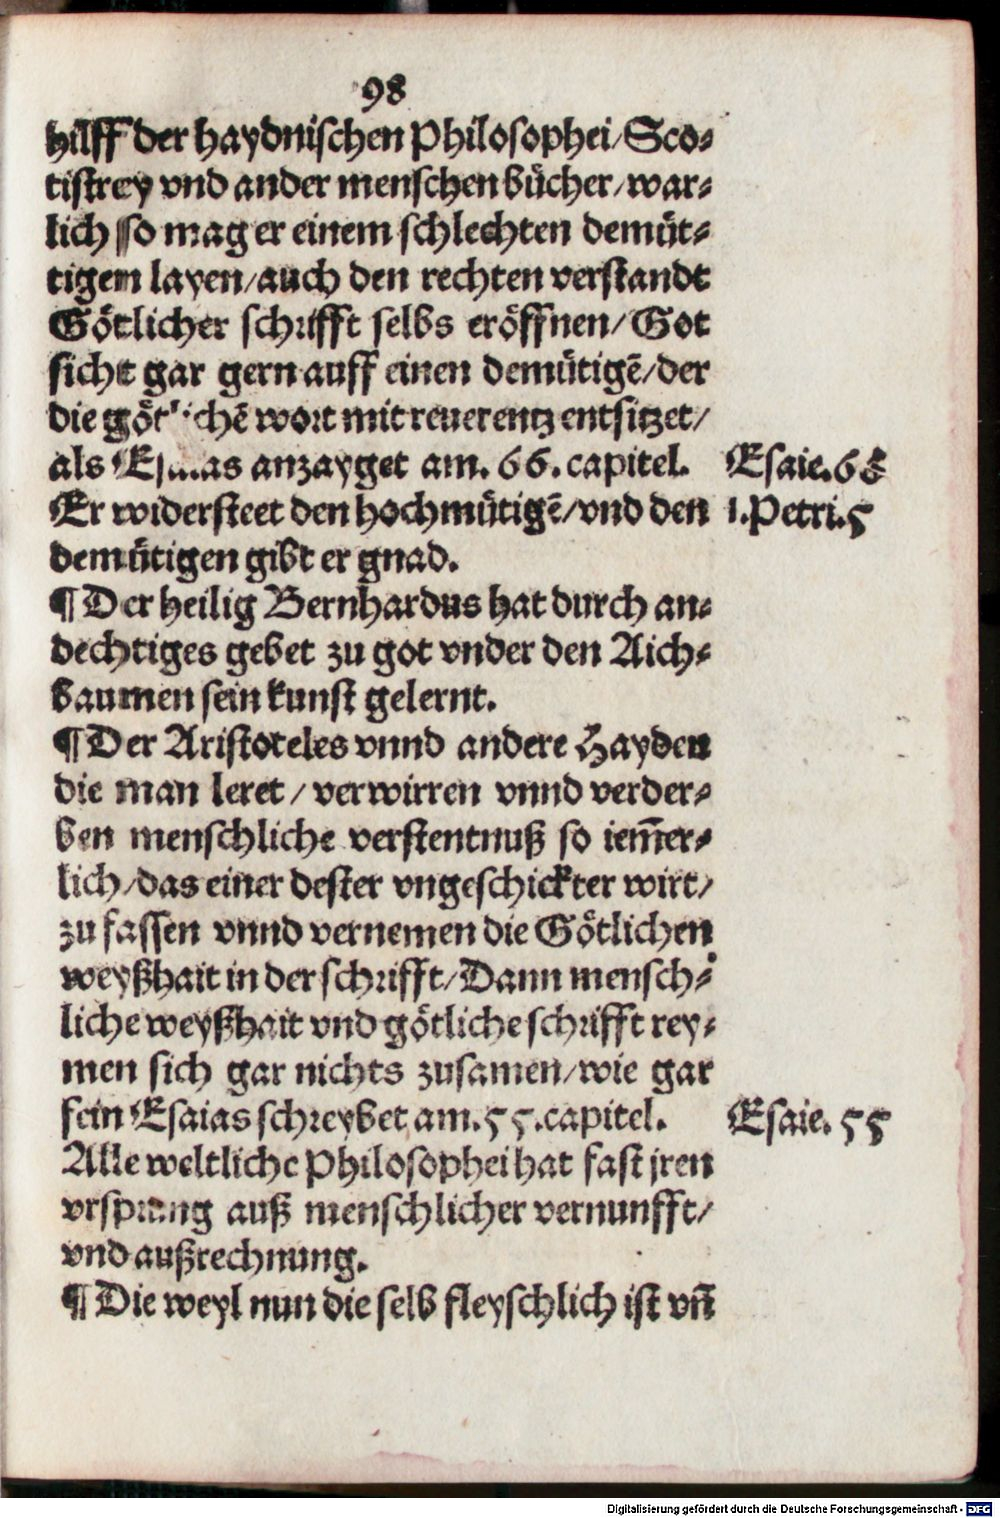 98
hilff der haydnischen Philosophei/Sco⸗
tistrey vnd ander menschen bücher/war⸗
lich so mag er einem schlechten demüt⸗
tigem layen/auch den rechten verstandt
Götlicher schrifft selbs eröffnen/Got
sicht gar gern auff einen demütigē/der
die götlichē wort mit reuerentz entsitzet/
als Esaias anzayget am. 66. capitel. Esaie.66
Er widersteet den hochmütigē/vnd den 1.Petri.5
demütigen gibt er gnad.
¶ Der heilig Bernhardus hat durch an⸗
dechtiges gebet zu got vnder den Aich⸗
baumen sein kunst gelernt.
¶ Der Aristoteles vnnd andere Hayden
die man leret / verwirren vnnd verder⸗
ben menschliche verstentnuß so iem̄er⸗
lich/das einer dester vngeschickter wirt/
zu fassen vnnd vernemen die Götlichen
weyßhait in der schrifft/Dann mensch⸗
liche weyßhait vnd götliche schrifft rey⸗
men sich gar nichts zusamen/wie gar
fein Esaias schreybet am.55.capitel. Esaie. 55
Alle weltliche Philosophei hat fast jren
vrsprung auß menschlicher vernunfft/
vnd außrechnung.
¶ Die weyl nun die selb fleyschlich ist vn̄
Digitalisierung gefördert durch die Deutsche Forschungsgemeinschaft - DFG